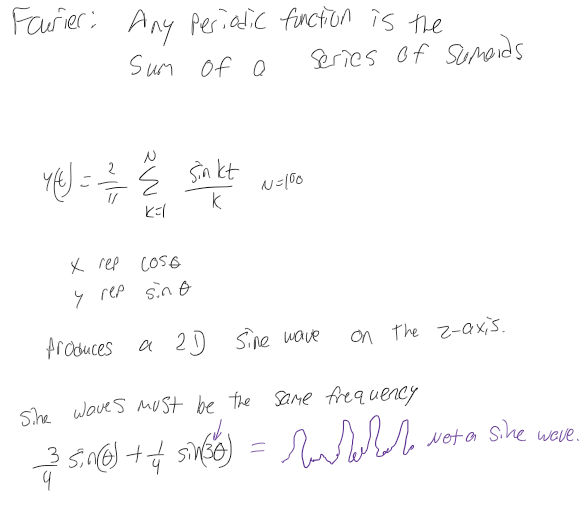 Fourier: Any periodic function is the
Sum of a series of Sumoids
y(t) = 2/π N Σ k=1 sin kt / k N=100
x rep cosθ
y rep sinθ
Produces a 2D sine wave on the z-axis.
Sine waves must be the same frequency
3/4 sin(θ) + 1/4 sin(3θ) = Not a sine wave.